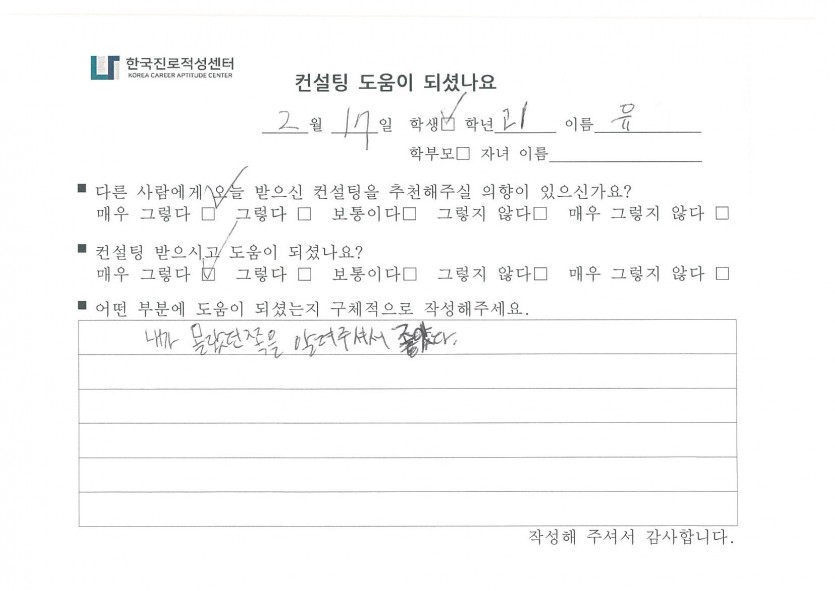 한국진로적성센터
KOREA CAREER APTITUDE CENTER
컨설팅 도움이 되셨나요
2월 17일 학생☑ 학년 고1 이름 유
학부모□ 자녀 이름
■ 다른 사람에게 오늘 받으신 컨설팅을 추천해주실 의향이 있으신가요?
매우 그렇다 ☑ 그렇다 □ 보통이다□ 그렇지 않다□ 매우 그렇지 않다 □
■ 컨설팅 받으시고 도움이 되셨나요?
매우 그렇다 ☑ 그렇다 □ 보통이다□ 그렇지 않다□ 매우 그렇지 않다 □
■ 어떤 부분에 도움이 되셨는지 구체적으로 작성해주세요.
내가 몰랐던쪽을 알려주셔서 좋았다.
작성해 주셔서 감사합니다.